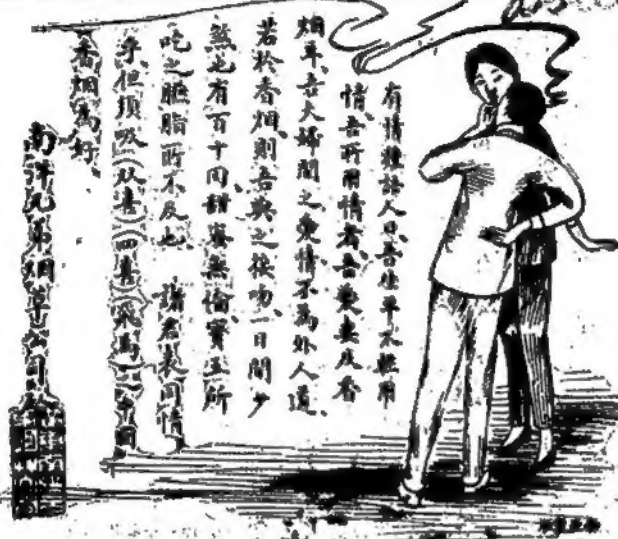 有情種語人曰吾生平不輕用
情吾所用情者吾愛妻及香
烟耳吾夫婦間之愛情不為外人道
若於香烟則吾與之接吻一日間少
煞也有百十同甜蜜無倫寶玉所
吃之臙脂所不及也 諸君表同情
乎但須吸(双喜)(四喜)(飛馬)之
香烟為好
南洋兄弟烟草公司